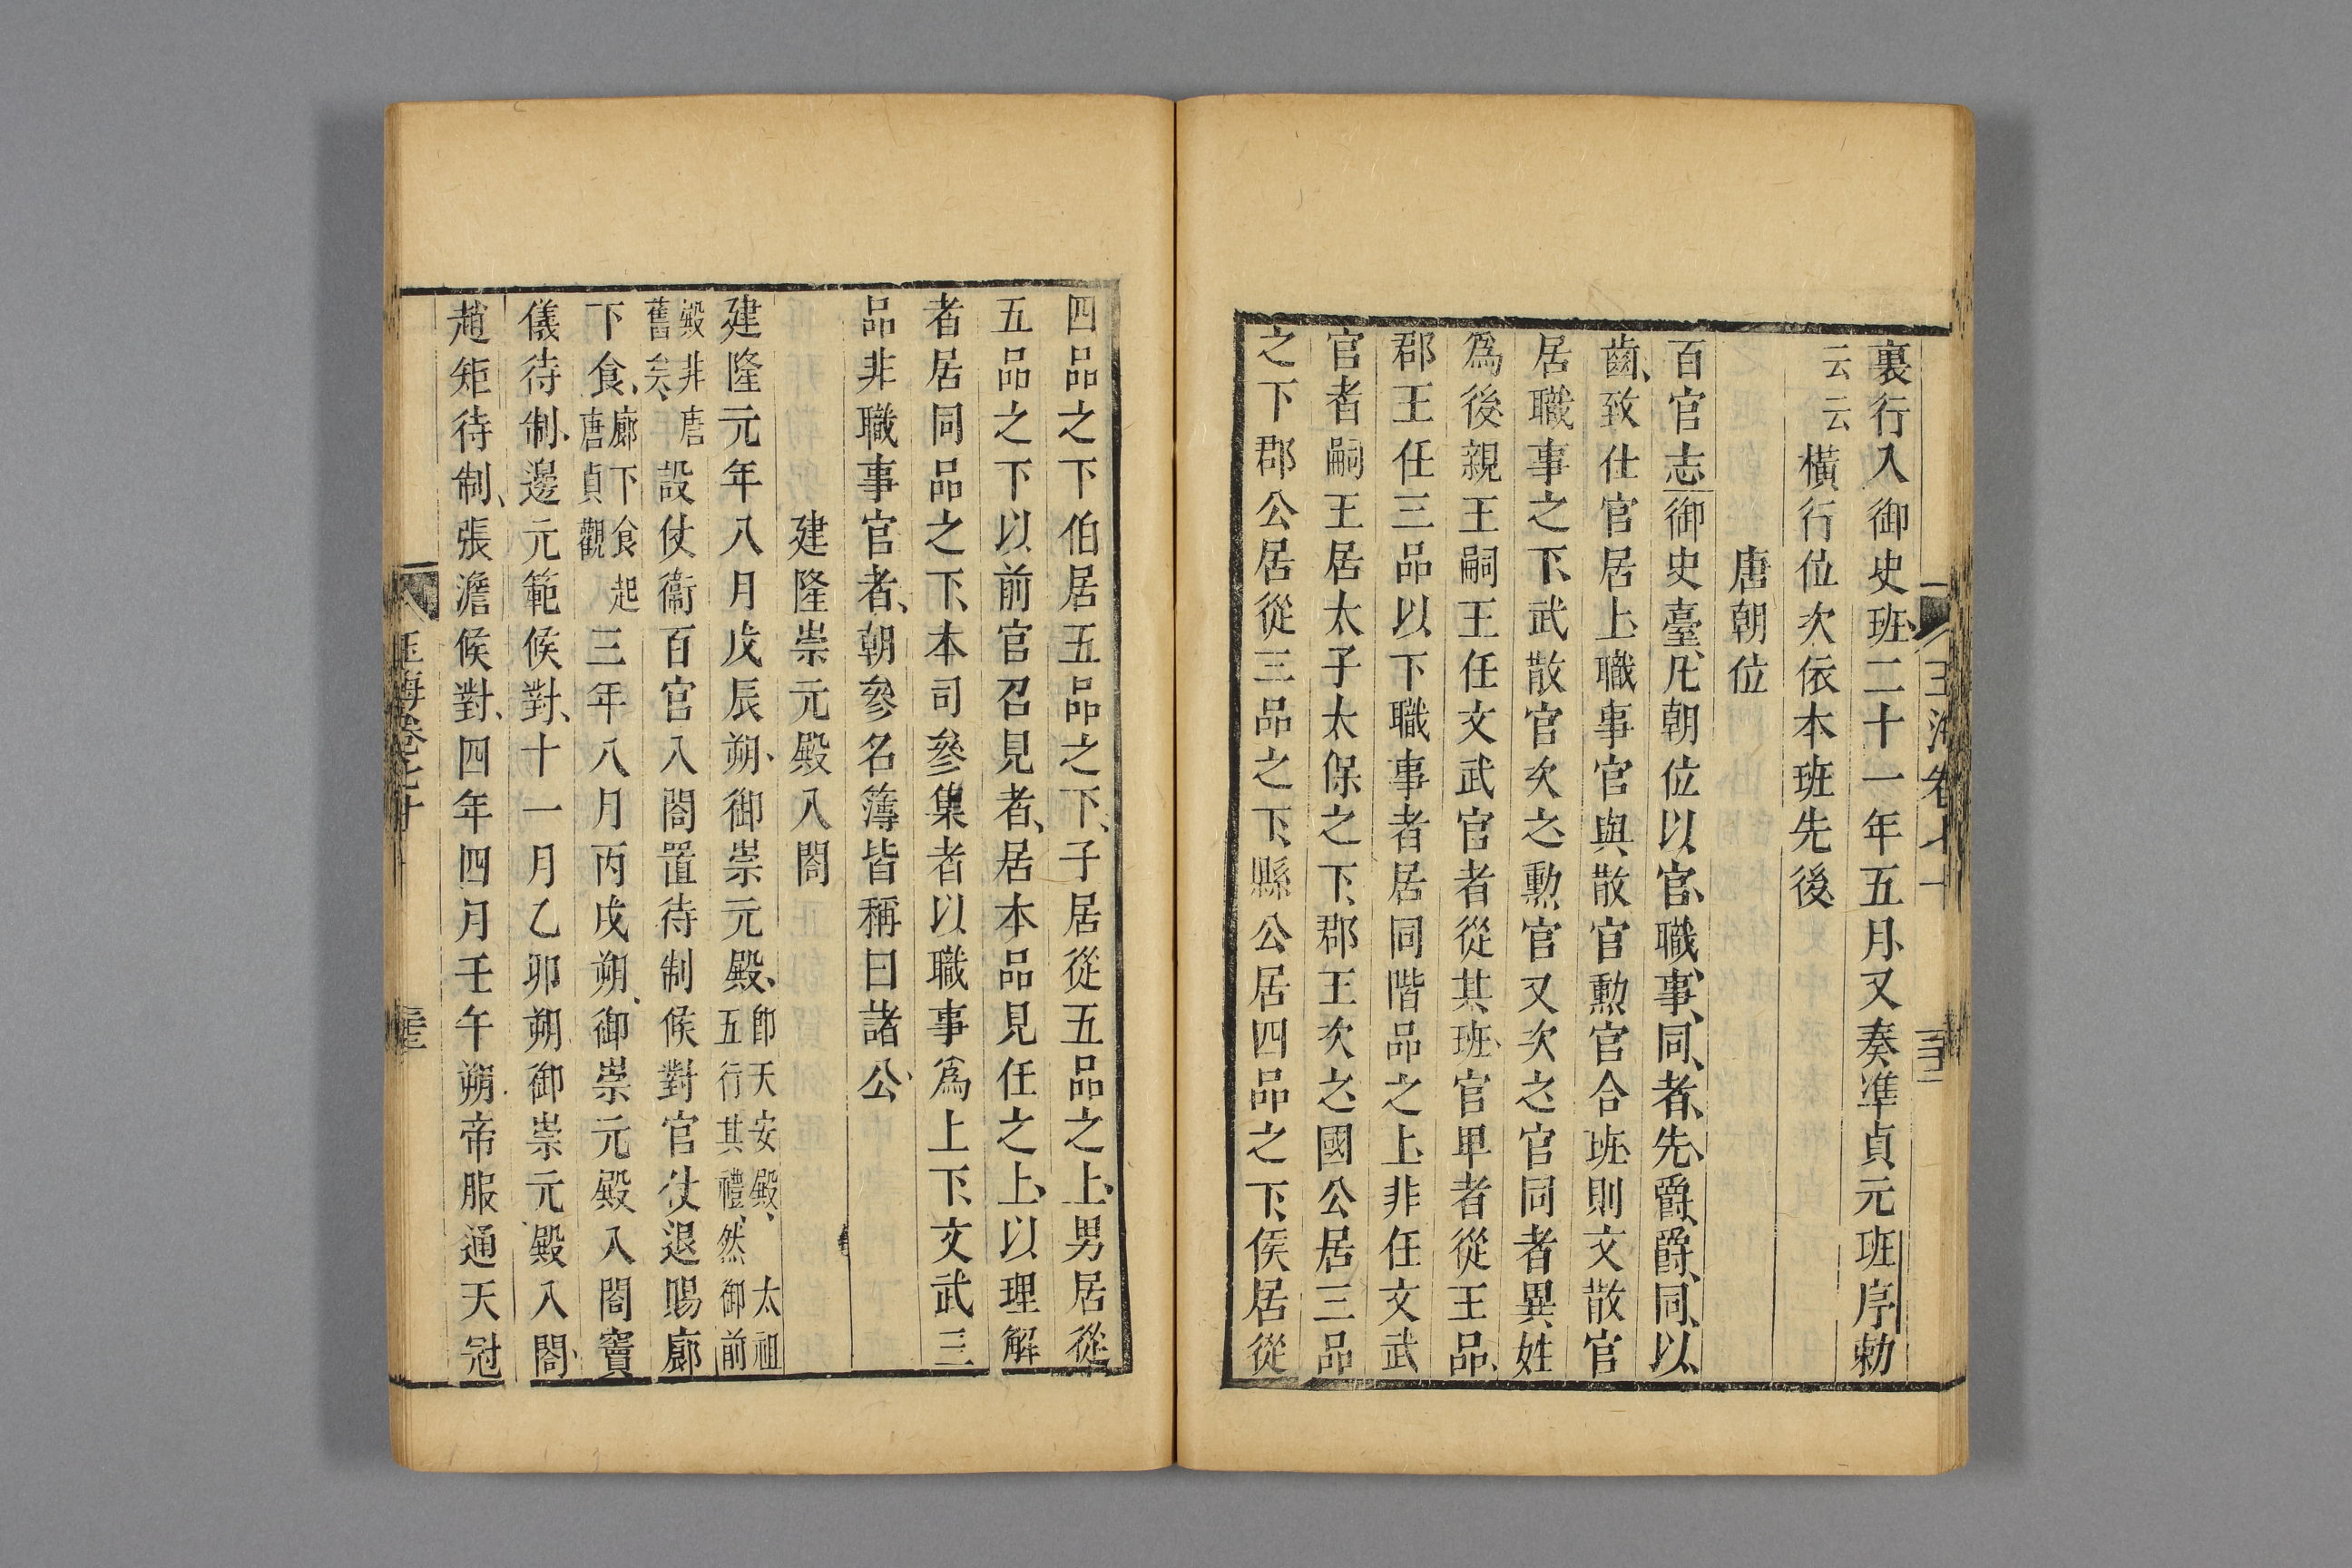 裏行入御史班二十一年五月又奏準貞元班序勅
云云橫行位次依本班先後
唐朝位
百官志御史臺凡朝位以官職事同者先爵爵同以
齒致仕官居上職事官與散官勲官合班則文散官
居職事之下武散官次之勲官又次之官同者異姓
爲後親王嗣王任文武官者從其班官卑者從王品
郡王任三品以下職事者居同階品之上非任文武
官者嗣王居太子太保之下郡王次之國公居三品
之下郡公居從三品之下縣公居四品之下侯居從
四品之下伯居五品之下子居從五品之上男居從
五品之下以前官召見者居本品見任之上以理解
者居同品之下本司參集者以職事爲上下文武三
品非職事官者朝參名簿皆稱曰諸公
建隆崇元殿入閤
建隆元年八月戊辰朔御崇元殿卽天安殿太祖
五行其禮然御前
殿非唐
舊矣
設仗衞百官入閤置待制候對官仗退賜廊
下食廊下食起
唐貞觀
三年八月丙戌朔御崇元殿入閤竇
儀待制邊元範候對十一月乙卯朔御崇元殿入閤
趙矩待制張澹候對四年四月壬午朔帝服通天冠
玉海卷七十